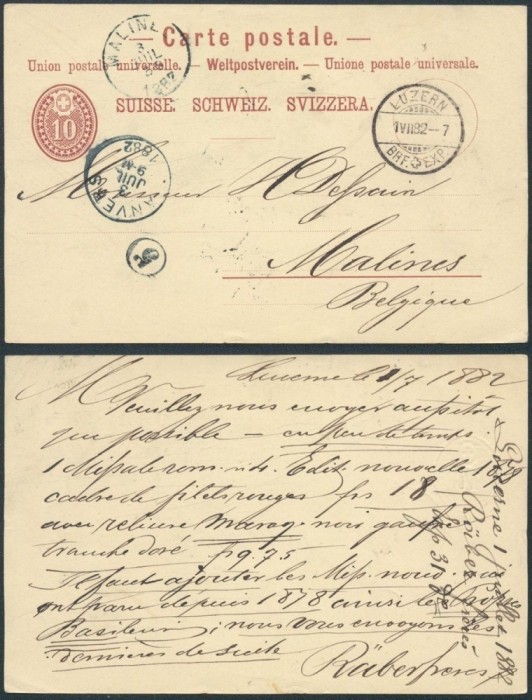 — Carte postale. —
Union postale universelle. — Weltpostverein. — Unione postale universale.
SUISSE. SCHWEIZ. SVIZZERA.
10
MALINES
3
JUIL
LUZERN
1 VII 82 – 7
BRF. EXP.
ANVERS
3
JUIL
9-M
1882
Monsieur H Dessain
Malines
Belgique
Lucerne le 1/7 1882
M
Veuillez nous envoyer aussitôt
que possible — en peu de temps.
1 Missale rom. Edit. nouvelle
cadre de filets rouges frs 18 —
avec reliure maroq. noir gaufré
tranche doré frs 9.75
Il faut ajouter les Miss. nouv. qui
ont paru depuis 1878 ainsi
nous vous envoyons les
dernières de suite
Räber frères
Lucerne 1 juillet 1882
Räber frères